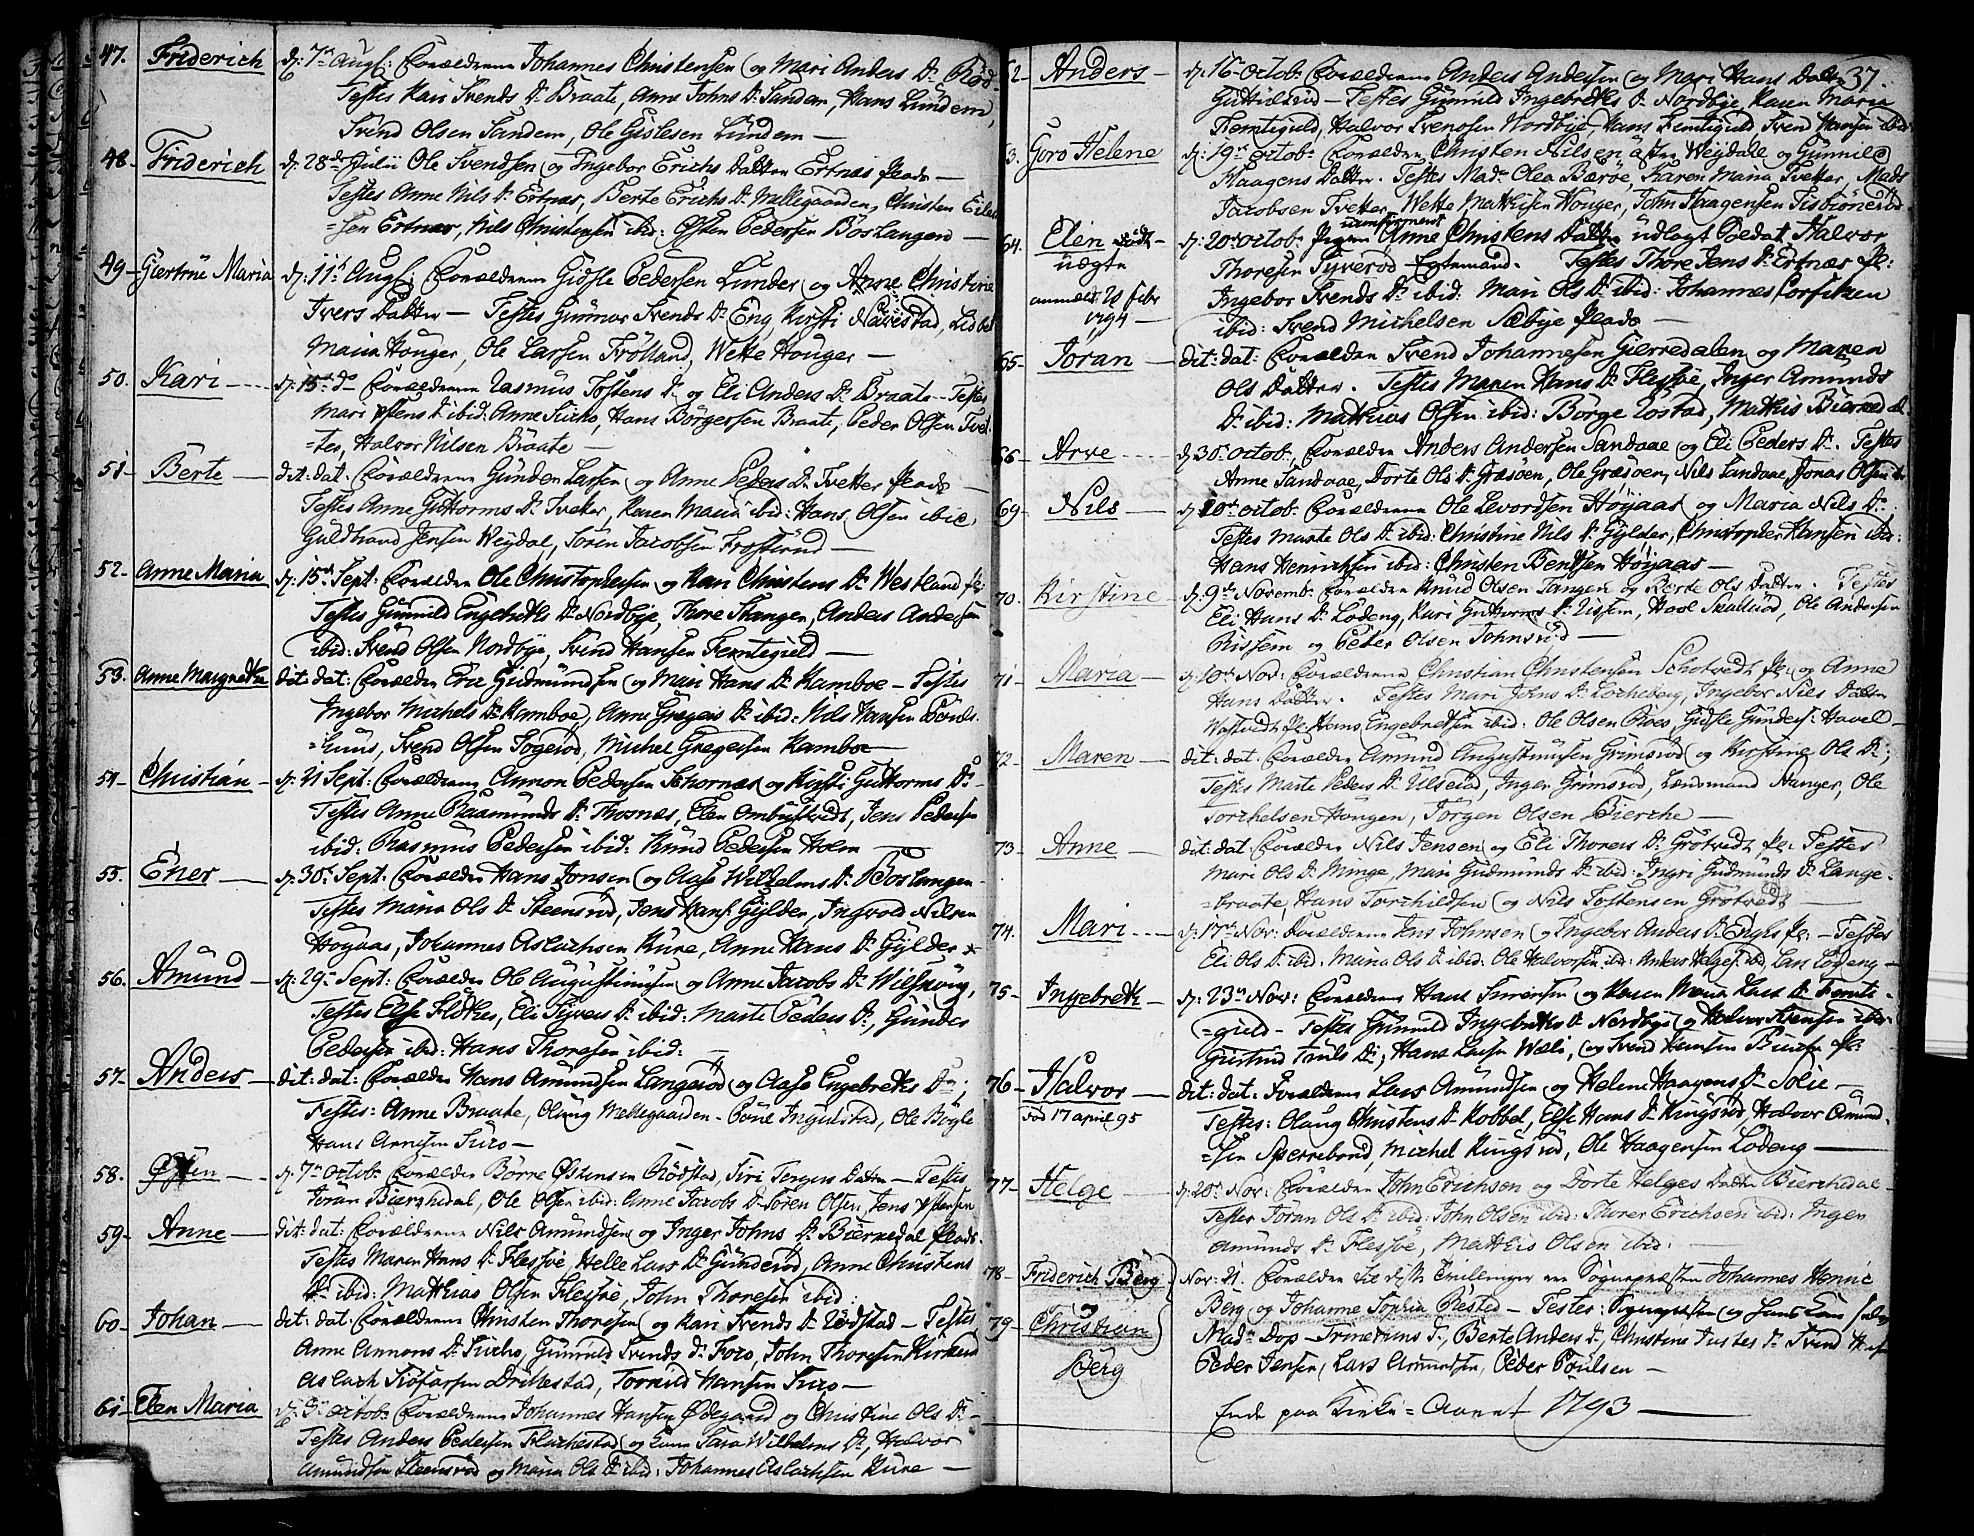 47. Friderich d: 7de Aug: Forældrene Johannes Christensen og Mari Anders D. Rød-
Testes Kari Svends D. Braate, Anne Johns D. Sandem, Hans Lundem,
Svend Olsen Sandem, Ole Gislesen Lundem —
48- Friderich d: 28de Julii Ole Svendsen og Ingebor Erichs Datter Ertnæs Plads —
Testes Anne Nils D. Ertnæs, Berte Erichs D. Mellegaarden, Christen
=sen Ertnæs, Nils Christensen ibid: Osten Pedersen Boslangen —
49- Giertrue Maria d: 11te Aug: Forældrene Gidsle Pedersen Lunder og Anne Christine
Ivers Datter — Testes Gunnor Svends D. Eng, Kirsti Navestad,
Maria Houger, Ole Larsen Frölland, Wette Houger —
50. Kari d: 15de do Forældrene Rasmus Tostens D. og Eli Anders D. Braate — Testes
Mari ibid: Anne Furho, Hans Börgersen Braate, Peder Olsen Tvet-
=ter, Halvor Nilsen Braate —
51- Berte dit: dat: Forældrene Gunder Larsen og Anne Peders D. Tvetter Plads —
Testes Anne Guttorms D. Tvetter, Karen Maria ibid: Hans Olsen ibid
Guldbrand Jensen Weydal, Sören Jacobsen Frosterud —
52- Anne Maria d: 15de Sept: Forælden Ole Christophersen og Kari Christens D. Westland pl:
Testes Gunnild Engebrets D. Nordbye, Thore Stangen, Anders Andersen
ibid: Svend Olsen Nordbye, Svend Hansen Femtegield —
53. Anne Margrethe dit: dat: Forælden Eric Gudmundsen og Mari Hans D. Kamboe — Testes
Ingebor Michels D. Kamboe, Anne Gregers D. ibid: Nils Hansen
=huus, Svend Olsen Togerød, Michel Gregersen Kamboe —
54- Christian — d: 21 Sept: Forældrene Ammon Pedersen Thornæs og Kirsti Guttorms D.
Testes Anne Raasmunds D. Thornæs, Elen Ombustvedt, Jens Pedersen
ibid: Rasmus Pedersen ibid: Knud Pedersen Holm —
55. Ener d: 30te Sept: Forælden Hans Jonsen og Aase Wilhelms D. Boslangen
Testes Maria Ols D. Steensrød, Jens Hans. Gylder, Ingvold Nilsen
Høyaas, Johannes Aslachsen Kure, Anne Hans D. Gylder
56. Amund — d: 29 Sept: Forælden Ole Augustinusen og Anne Jacobs D.
Testes Else Flökes, Eli Syvers D. ibid: Marte Peders D., Gunder
Pedersen ibid: Hans Thoresen ibid: —
57- Anders — dit: dat: Forælden Hans Amundsen Langerød og Aase Engebrets D.
Testes: Anne Braate, Olaug Mellegaarden — Poul Ingulstad, Ole Bögle
Hans Arnesen Furo —
58. Østen — d: 7de Octob: Forælden Börre Østensen Rödstad, Siri Torgers Datter — Testes
Joran Bierchedal, Ole Olsen ibid: Anne Jacobs D. Sören Olsen, Jens
59- Anne — dit: dat: Forældrene Nils Amundsen og Inger Johns D. Bierkedal Plads.
Testes Maren Hans D. Flessøe, Helle Lars D. Gunderød, Anne Christens
D. ibid: Mathias Olsen Flessøe, John Thoresen ibid:
60- Johan dit: dat: Forældrene Christen Thoresen og Kari Svends D. Rödstad — Testes
Anne Ammons D. Furho, Gunnild Svends D. Foro, John Thoresen
Aslach Drillestad, Hansen Furo —
61- Elen Maria d: 9de Octob: Forældrene Johannes Hansen Ødegaard og Christine Ols D.
Testes Anders Pedersen Flachestad Sara Wilhelms D., Halvor
Amundsen Steensrød og Maria Ols D. ibid: Johannes Aslachsen Kure —
37.
62- Anders — d: 16 Octob: Forældrene Anders Andersen og Mari Hans Datter
Testes Gunnild Ingebrets D. Nordbye, Karen Maria
Femtegield, Halvor Svendsen Nordbye, Hans Femtegield Svend Hansen ibid
3. Goro Helene d: 19de Octob: Forælden Christen Nilsen Weydal og Gunnild
Haagens Datter. Testes Mad. Olea Bærøe, Karen Maria Tvetter, Mads
Jacobsen Tvetter, Wette Mathisen Houger, John Haagensen
64. Elen uægte d: 20de Octob: Pigen uconfirmert Anne Christens Datter udlagt Soldat Halvor
anmeldt 20 Febr 1794 — Thoresen Syverød Egtemand. Testes Thore Jens D. Ertnæs pl:
Ingebor Svends D. ibid: Mari Ols D. ibid: Johannes Torfinsen
ibid: Svend Michelsen Sæbye Plads —
65- Joran — dit: dat: Forælden Svend Johannesen Gierredalen og Maren
Ols Datter. Testes Maren Hans D. Flessøe, Inger Amunds
D. ibid: Mathias Olsen ibid: Börge Rostad, Mathis
66- Arve — d: 30te Octob: Forælden Anders Andersen Sandaae og Eli Peders D. Testes
Anne Sandaae, Dorte Ols D. Græsøen, Ole Græsøen, Nils Sandaae, Jonas Olsen
69- Nils — d: 20de Octob: Forældrene Ole Levordsen Høyaas og Maria Nils D.
Testes Marte Ols D. ibid: Christine Nils D. Gylder, Christopher Hansen ibid:
Hans Henrichsen ibid: Christen Bentsen Høyaas —
70. Kirstine d: 9de Novemb: Forælden Knud Olsen Tangen og Berte Ols Datter. Testes
Eli Hans D. Lodeng, Kari Guttorms D. Rissem, Hovel Skullerød, Ole Andersen
Rissem og Peter Olsen Johnsrud —
71- Maria — d: 10de Nov: Forældrene Christian Christensen pl: og Anne
Hans Datter. Testes Mari Johns D. Locheberg, Ingebor Nils Datter
pl: Hans Engebretsen ibid: Ole Olsen Gidsle Gunders: —
72- Maren — dit: dat: Forælden Amund Augustinusen Grimsrød og Kirstine Ols D.;
Testes Marte Peders D. Ulserød, Inger Grimsrød, Lensmand Hunger, Ole
Torchelsen Hougen, Jörgen Olsen Bierche —
73- Anne — dit: dat: Forælden Nils Jensen og Eli Thorers D. Grötvedt pl: Testes
Mari Ols D. Minge, Mari Gudmunds D. ibid: Ingri Gudmunds D. Lange-
=braate, Hans Torchildsen og Nils Tostensen Grötvedt —
74. Mari — d: 17de Nov: Forældrene Jens Johnsen og Ingebor Anders D. pl: — Testes
Eli Ols D. ibid. Maria Ols D. ibid: Ole Halvorsen ibid: Anders Helges: ibid Lars Lodeng —
75- Ingebreth — d: 23de Nov: Forældrene Hans Sörensen og Karen Maria Lars D. Femte-
=gield — Testes Gunnild Ingebrets D. Nordbye og Halvor Svensen ibid:
Giertrud Truls D:, Hans Larsen og Svend Hansen pl:
76- Halvor — dit: dat: Forældrene Lars Amundsen og Helene Haagens D. Solie —
død 17 april 95 Testes: Olaug Christens D. Kobbel, Else Hans D. Kingsrød, Halvor Amund-
=sen Sperrebond, Michel Kingsrød, Ole Haagensen Lodeng —
77- Helge — d: 20de Nov: Forælden John Erichsen og Dorte Helges Datter Bierchedal
Testes Joran Ols D. ibid: John Olsen ibid: Thorer Erichsen ibid: Inger
Amunds D. Flessøe, Mathis Olsen ibid: —
78- Friderich Berg Nov: 21. Forælden til disse Tvillinger ere Sognepræsten Johannes Henric
79- Christian Berg Berg og Johanne Sophia Rested — Testes:
Mad. Dop — D., Berte Anders D., Christine Justes D. Svend
Peder Jensen, Lars Amundsen, Peder Poulsen —
Ende paa Kirke=Aaret 1793 —